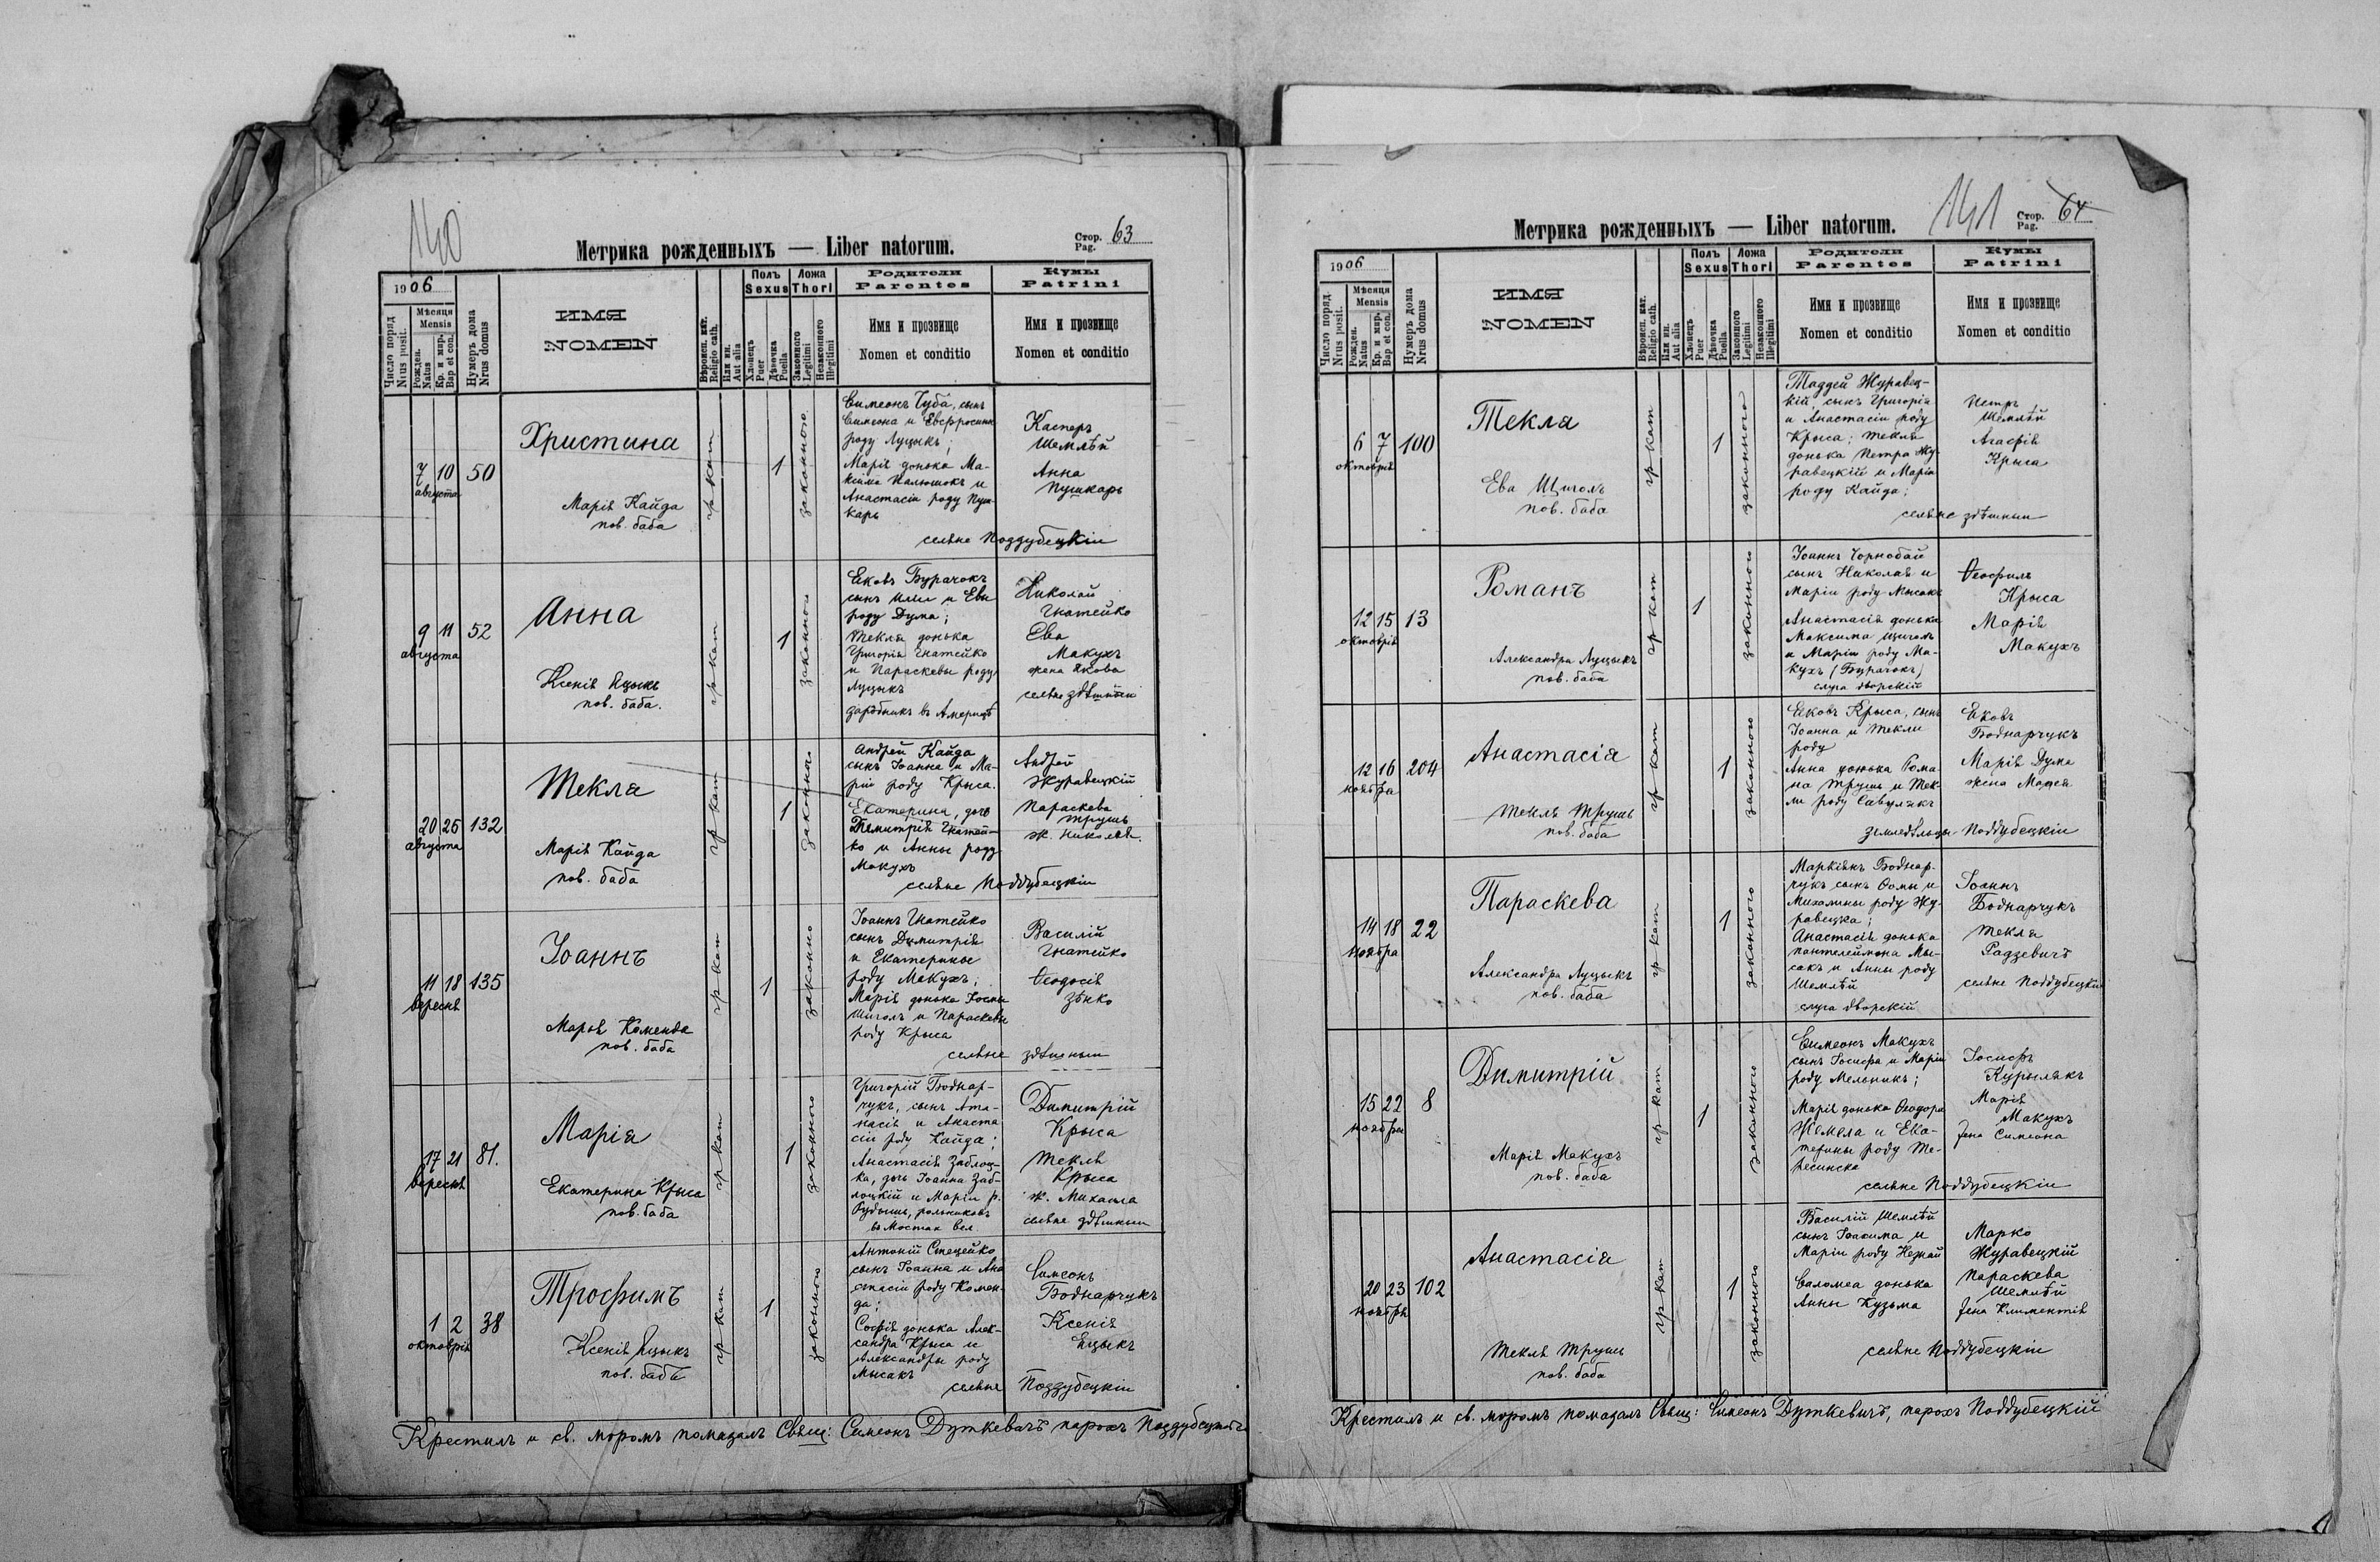 140
Метрика рожденныхъ — Liber natorum.
Стор. Pag. 63
1906
Число поряд Nrus posit.
Мѣсяця Mensis
Рожден. Natus
Кр. и мир. Bap et con.
Нумеръ дома Nrus domus
ИМЯ
NOMEN
Вѣроисп. кат. Religio cath.
Или ин. Aut alia
Полъ Sexus
Хлопецъ Puer
Дѣвочка Puella
Ложа Thori
Законного Legitimi
Незаконного Illegitimi
Родители
Parentes
Имя и прозвище
Nomen et conditio
Кумы
Patrini
Имя и прозвище
Nomen et conditio
7 10 50
августа
Христина
Марія Кайда
пов. баба
гр кат
1
законного
Симеонъ Чуба, сынъ
Симеона и Евфросины
роду Луцыкъ;
Марія донька Ма-
ксима Налюшокъ и
Анастасіи роду Пуш-
карь
Касперъ
Шемлѣй
Анна
Пушкарь
селяне Поддубецкіи
9 11 52
августа
Анна
Ксенія Яцыкъ
пов. баба.
гр кат
1
законного
Яковъ Бурачокъ
сынъ Иліи и Евы
роду Дума;
Текля донька
Григорія Гнатейко
и Параскевы роду
Луцыкъ
зарôбникъ въ Америцѣ
Николай
Гнатейко
Ева
Макухъ
жена Якова
селяне здѣшныи
20 26 132
августа
Текля
Марія Кайда
пов. баба
гр кат
1
законного
Андрей Кайда
сынъ Іоанна и Ма-
ріи роду Крыса.
Екатерина, дочь
Димитрія Гнатей-
ко и Анны роду
Макухъ
Андрей
Журавецкій
Параскева
Трушъ
ж. Николая.
селяне Поддубецкіи
11 18 135
вересня
Іоаннъ
Марія Коменда
пов. баба
гр кат
1
законно
Іоаннъ Гнатейко
сынъ Димитрія
и Екатерины
роду Макухъ;
Марія донька
Щиголъ и Параскевы
роду Крыса
Василій
Гнатейко
Ѳеодосія
Зѣнко
селяне здѣшныи
17 21 81.
вересня
Марія
Екатерина Крыса
пов. баба
гр кат
1
законного
Григорій Боднар-
чукъ, сынъ Ата-
насія и Анаста
сіи роду Кайда;
Анастасія Заблоц-
ка, дочь Іоанна Заб-
лоцкій и Маріи р.
рольниковъ
въ Мостах вел.
Димитрій
Крыса
Текля
Крыса
ж. Михаила
селяне здѣшныи
1 2 38
октоврія
Трофимъ
Ксенія Яцыкъ
пов. баба
гр кат
1
законного
Антоній Стецейко
сынъ Іоанна и Ана
стасіи роду Комен-
да;
Софія донька Алек-
сандра Крыса и
Александры роду
Мысакъ
Симеонъ
Боднарчукъ
Ксенія
Яцыкъ
селяне Поддубецкіи
Крестилъ и св. муромъ помазалъ Свящ: Симеонъ Дуткевичъ парохъ Поддубецкій
141
Метрика рожденныхъ — Liber natorum.
Стор. Pag. 64
1906
Число поряд Nrus posit.
Мѣсяця Mensis
Рожден. Natus
Кр. и мир. Bap et con.
Нумеръ дома Nrus domus
ИМЯ
NOMEN
Вѣроисп. кат. Religio cath.
Или ин. Aut alia
Полъ Sexus
Хлопецъ Puer
Дѣвочка Puella
Ложа Thori
Законного Legitimi
Незаконного Illegitimi
Родители
Parentes
Имя и прозвище
Nomen et conditio
Кумы
Patrini
Имя и прозвище
Nomen et conditio
6 7 100
октоврія
Текля
Ева Щиголъ
пов. баба
гр кат
1
законного
Таддей Журавец-
кій сынъ Григорія
и Анастасіи роду
Крыса; Текля
донька Петра Жу-
равецкій и Маріи
роду Кайда;
Петръ
Шемлѣй
Агафія
Крыса
селяне здѣшныи
12 15 13
октоврія
Романъ
Александра Луцыкъ
пов. баба
гр кат
1
законного
Іоаннъ Чорнобай
сынъ Николая и
Маріи роду Мысакъ
Анастасія донька
Максима Щиголъ
и Маріи роду Ма-
кухъ (Бурачокъ)
слуга дворскій
Ѳеофилъ
Крыса
Марія
Макухъ
12 16 204
ноября
Анастасія
Текля Трушъ
пов. баба
гр кат
1
законного
Яковъ Крыса, сынъ
Іоанна и Текли
роду
Анна донька Рома-
на Трушъ и Тек-
ли роду Савулякъ
Яковъ
Боднарчукъ
Марія Дума
жена Матея
земледѣльцы Поддубецкіи
14 18 22
ноября
Параскева
Александра Луцыкъ
пов. баба
гр кат
1
законного
Маркіянъ Боднар-
чукъ сынъ Ѳомы и
Михалины роду Жу-
равецка;
Анастасія донька
Пантелеймона Мы-
сакъ и Анны роду
Шемлѣй
слуга дворскій
Іоаннъ
Боднарчукъ
Текля
Радзевичъ
селяне Поддубецкіи
15 22 8
ноября
Димитрій
Марія Макухъ
пов. баба
гр кат
1
законного
Симеонъ Макухъ
сынъ Іосифа и Маріи
роду Мельникъ;
Марія донька Ѳеодора
Жемела и Ека-
терины роду Те-
ресинска
Іосифъ
Курылякъ
Марія
Макухъ
жена Симеона
селяне Поддубецкіи
20 23 102
ноября
Анастасія
Текля Трушъ
пов. баба
гр кат
1
законного
Василій Шемлѣй
сынъ Іоакима и
Маріи роду Нежай
Саломеа донька
Анны Кузьма
Марко
Журавецкій
Параскева
Шемлѣй
жена Климентія
селяне Поддубецкіи
Крестилъ и св. муромъ помазалъ Свящ: Симеонъ Дуткевичъ, парохъ Поддубецкій